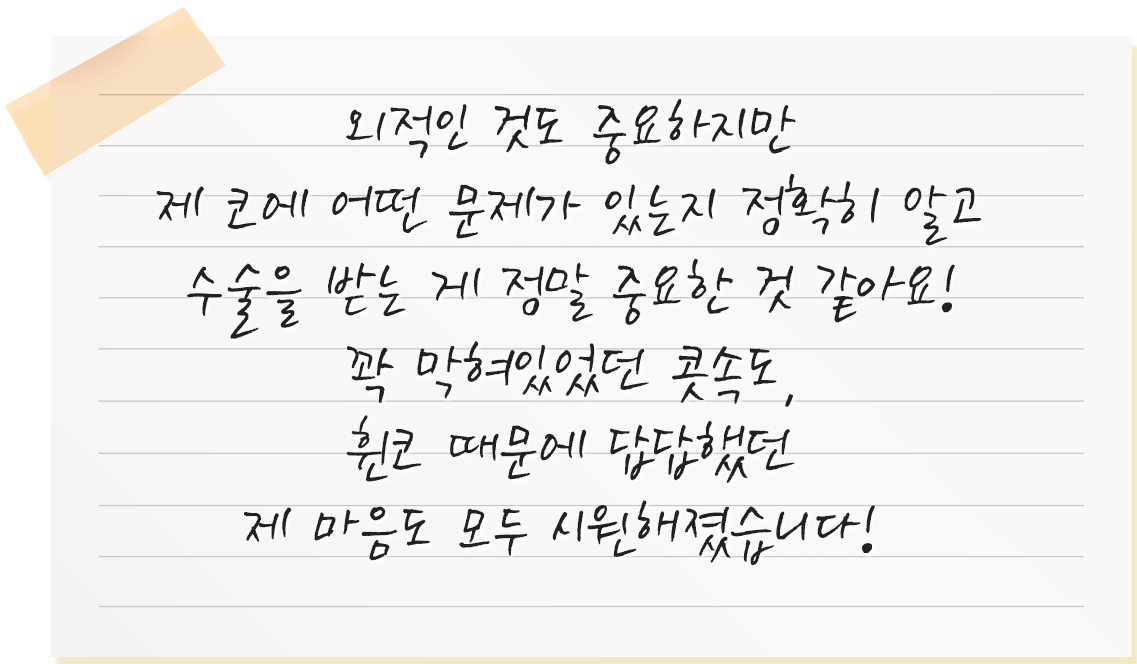 외적인 것도 중요하지만
제 코에 어떤 문제가 있는지 정확히 알고
수술을 받는 게 정말 중요한 것 같아요!
꽉 막혀있었던 콧속도,
휜코 때문에 답답했던
제 마음도 모두 시원해졌습니다!